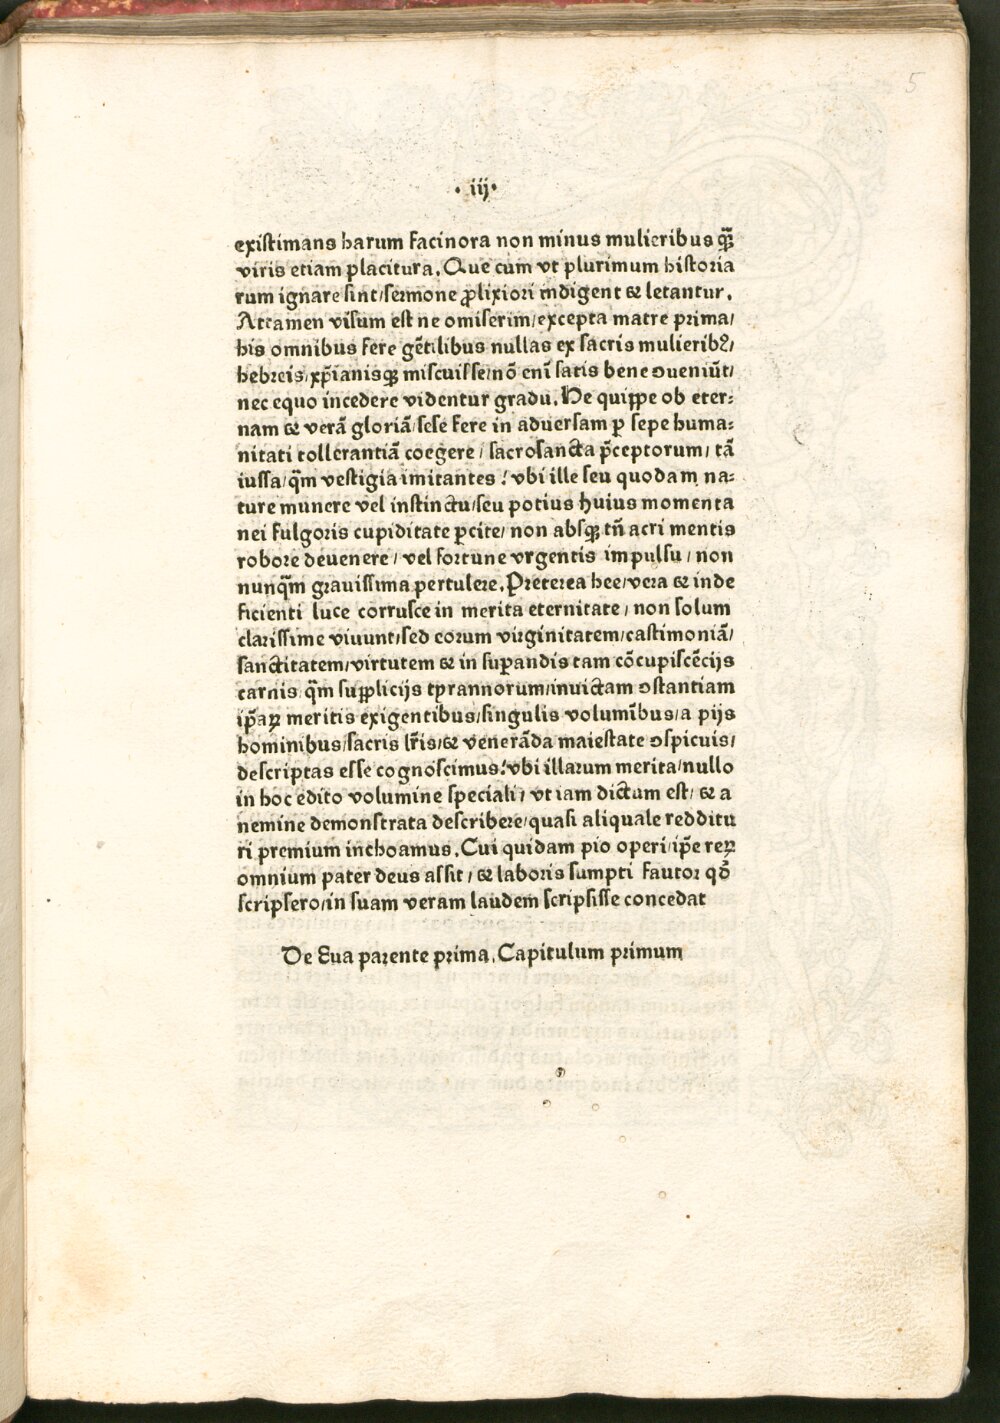 5
· iij ·
existimans harum facinora non minus mulieribus qꝫ̃
viris etiam placitura. Que cum vt plurimum historia
rum ignare sint/sermone ꝓlixiori indigent & letantur.
Attamen visum est ne omiserim/excepta matre prima/
his omnibus fere gẽtilibus nullas ex sacris mulieribꝰ/
hebreis/xp̃ianisqꝫ miscuisse/nõ enĩ satis bene ↄueniũt/
nec equo incedere videntur gradu. He quippe ob eter⸗
nam & verã gloriã/sese fere in aduersam ꝑ sepe huma⸗
nitati tollerantiã coegere/sacrosancta p̃ceptorum/tã
iussa/q̃m vestigia imitantes! vbi ille seu quodam na⸗
ture munere vel instinctu/seu potius huius momenta
nei fulgoris cupiditate ꝑcite/non absqꝫ tñ acri mentis
robore deuenere/vel fortune vrgentis impulsu/non
nunq̃m grauissima pertulere. Preterea hee/vera & inde
ficienti luce corrusce in merita eternitate/non solum
clarissime viuunt/sed eorum virginitatem/castimoniã/
sanctitatem/virtutem & in suꝑandis tam cõcupiscẽcijs
carnis q̃m supplicijs tyrannorum/inuictam ↄstantiam
ip̃aꝝ meritis exigentibus/singulis volumĩbus/a pijs
hominibus/sacris lr̃is/& venerãda maiestate ↄspicuis/
descriptas esse cognoscimus! vbi illarum merita/nullo
in hoc edito volumine speciali/vt iam dictum est/& a
nemine demonstrata describere/quasi aliquale redditu
ri premium inchoamus. Cui quidam pio operi/ip̃e reꝝ
omnium pater deus assit/& laboris sumpti fautor qð
scripsero/in suam veram laudem scripsisse concedat
De Eua parente prima. Capitulum primum